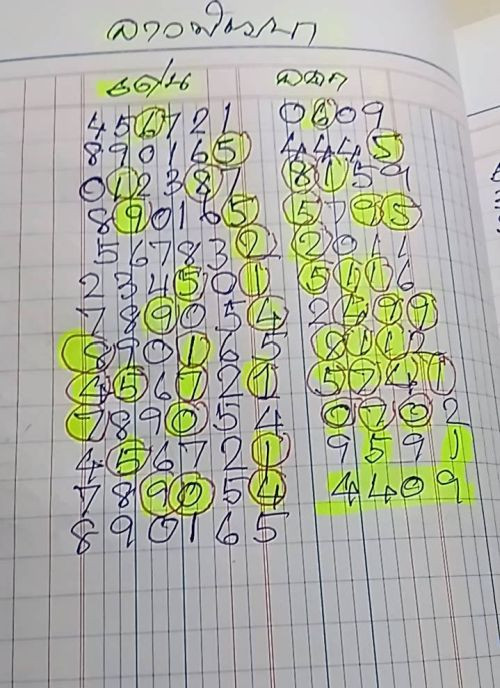 ลาวพัฒนา
เด่น ออก
456721 0609
890165 4445
012387 8159
890165 5795
567832 2011
234501 5116
789054 2499
890165 8112
456721 5741
789054 0702
456721 9591
789054 4409
890165